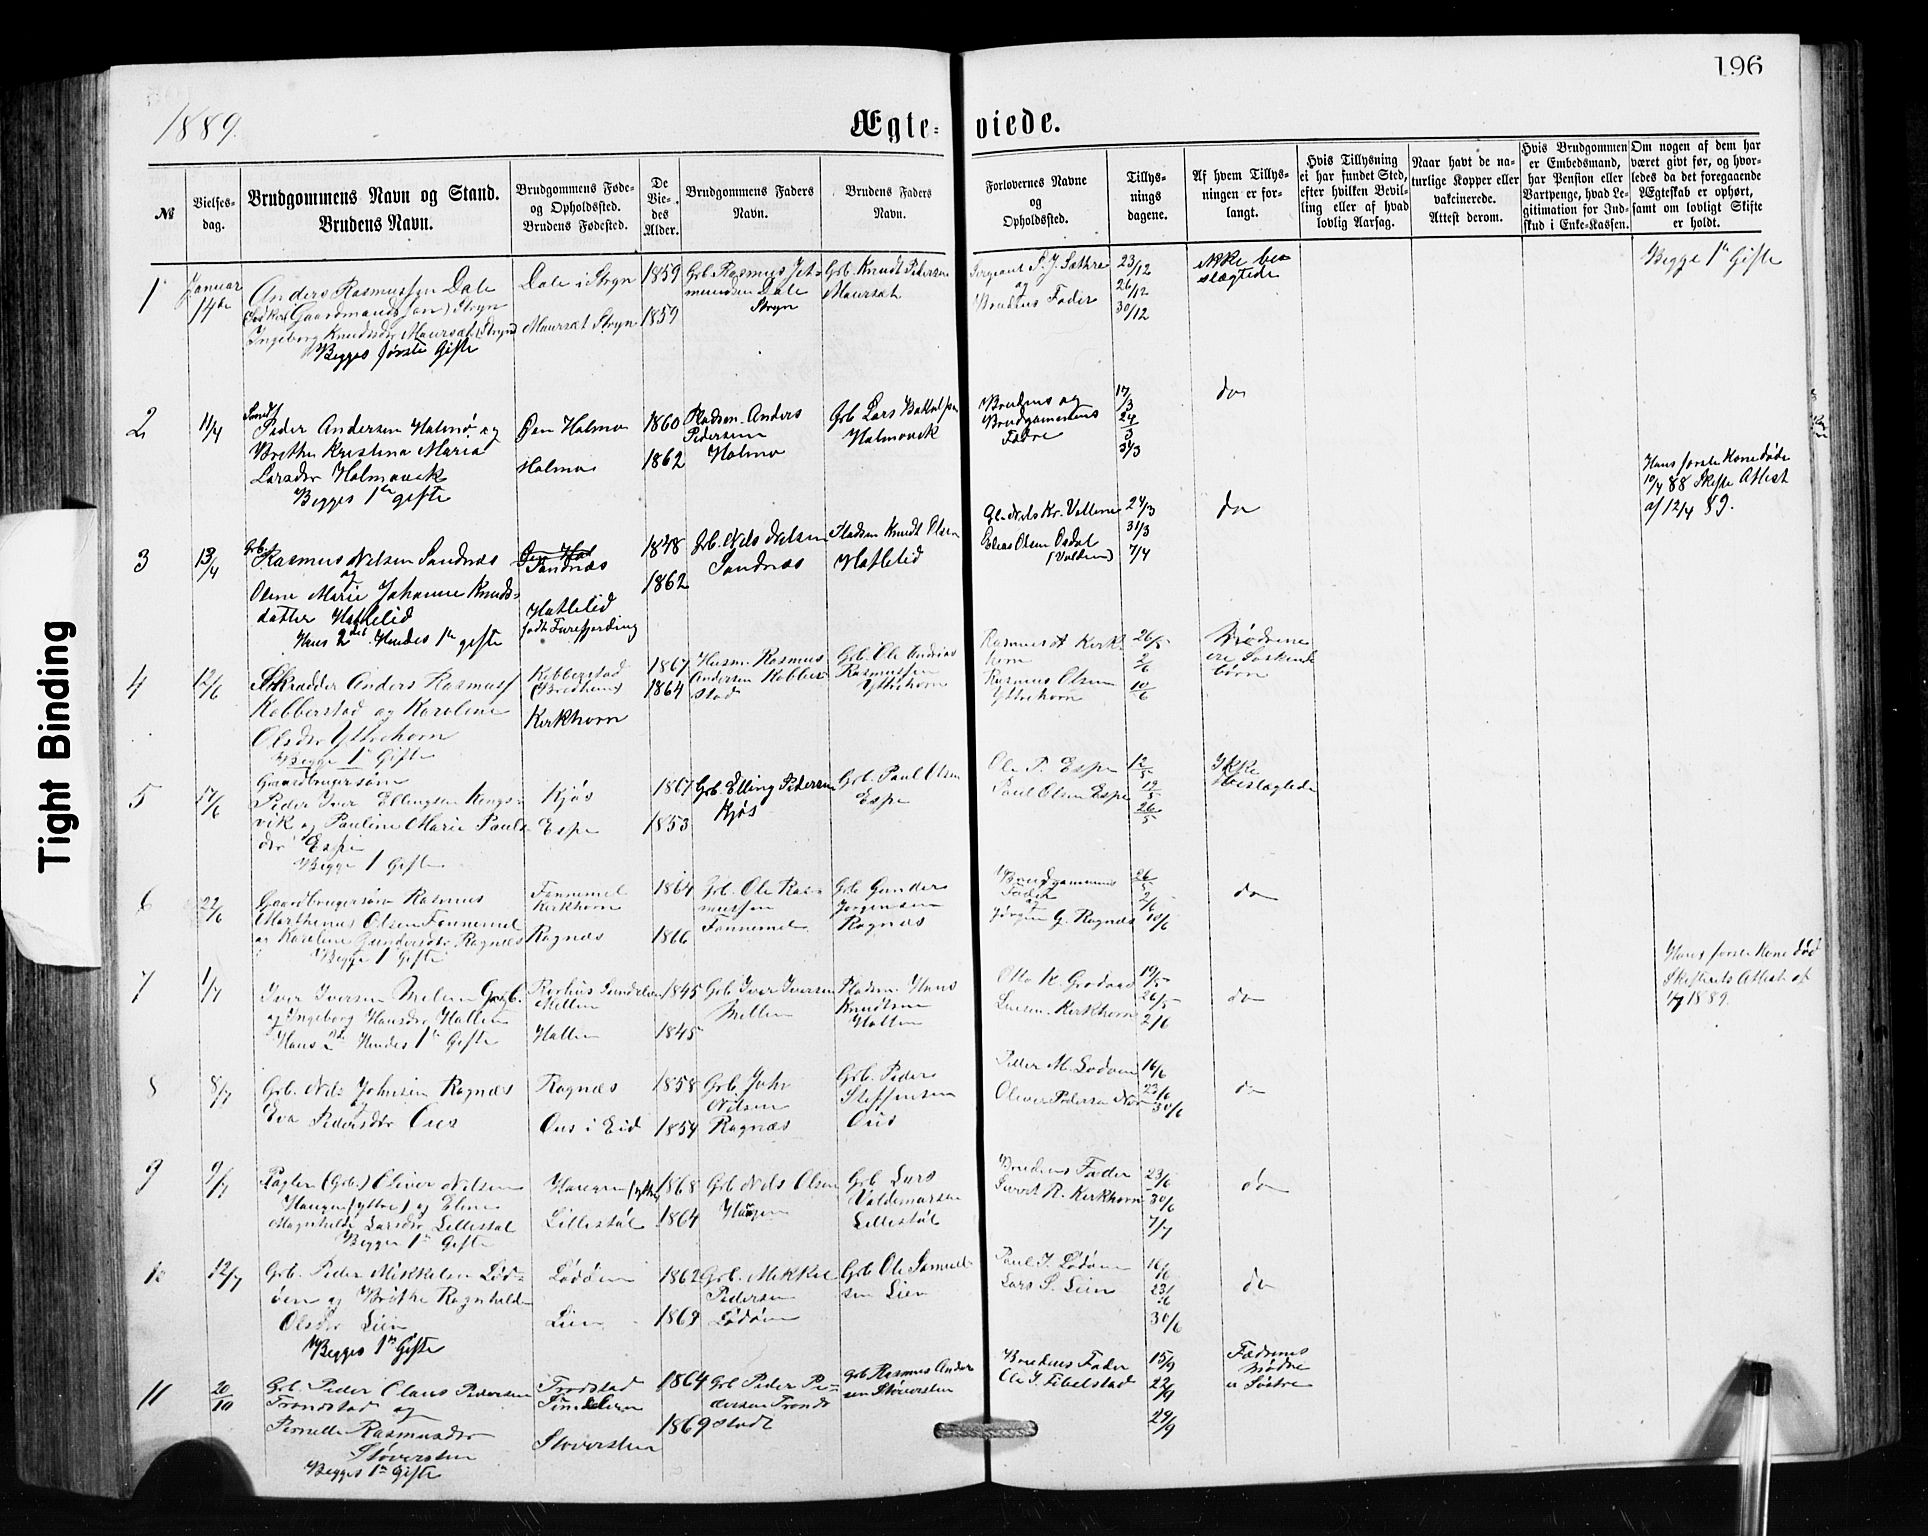 196
1889.
Ægte- viede.
№
Vielses-
dag.
Brudgommens Navn og Stand.
Brudens Navn.
Brudgommens Føde-
og Opholdssted.
Brudens Fødested.
De
Vie-
des
Alder.
Brudgommens Faders
Navn.
Brudens Faders
Navn.
Forlovernes Navne
og
Opholdssted.
Tillys-
nings
dagene.
Af hvem Tillys-
ningen er for-
langt.
Hvis Tillysning
ei har fundet Sted,
efter hvilken Bevil-
ling eller af hvad
lovlig Aarsag.
Naar havt de na-
turlige Kopper eller
vakcinerede.
Attest derom.
Hvis Brudgommen
er Embedsmand,
har Pension eller
Vartpenge, hvad Le-
gitimation for Ind-
skud i Enke-Kassen.
Om nogen af dem har
været givt før, og hvor-
ledes da det foregaaende
Ægteskab er ophørt,
samt om lovligt Skifte
er holdt.
1
Januar
14de
Anders Rasmussen Dale
Gaardmandssøn) Stryn
Ingeborg Knudsdtr Maursæt (Stryn)
Begges første Gifte
Dale i Stryn
Maursæt Stryn
1859
1859
Gb. Rasmus
Dale
Stryn
Grb. Knudt Pedersen
Maursæt
Sergeant P. J. Sæthre
og
Brudens Fader
23/12
26/12
30/12
ikke be-
slægtede
Begge 1ste Gifte
2
11/4
Smed
Peder Andersen Holmø og
Brithe Kristina Maria
Larsdtr Holmøvik
Begges 1ste gifte
Øen Holmø
Holmø
1860
1862
Pladsm. Anders
Pedersen
Holmø
Grb Lars
Holmøvik
Brudens og
Brudgommens
Fædre
17/3
24/3
31/3
do
3
13/4
Grb.
Rasmus Nilsen Sandnæs
og
Oline Marie Johanne Knuds-
datter Hatlelid
Hans 2det Hendes 1ste gifte
Sandnæs
Hatlelid
født Furefjording
1848
1862
Grb. Nils Nilsen
Sandnæs
Pladsm Knudt Olsen
Hatlelid
Gb. Nils Kr. Vollene
Elias Olsen Osdal
(Volden)
24/3
31/3
7/4
do
Hans første Kone døde
10/4 88 Skifte Attest
af 12/4 89.
4
12/6
Skrædder Anders Rasmuss
Kobberstad og Karoline
Olsdtr Yttrehorn
Begge 1ste Gifte
Kobberstad
(Bredheim)
Kirkhorn
1867
1864
Husm. Rasmus
Andersen Kobber-
stad
Grb. Ole Andreas
Rasmussen
Yttrehorn
Rasmus A Kirk
horn
Rasmus Olsen
Yttrehorn
26/5
2/6
10/6
Mødrene
ere Søskende
børn
5
17/6
Gaardbrugersøn
Peder Iver Ellingsen Kongs-
vik og Pauline Marie Pauls-
dtr Espe
Begge 1 Gifte
Kjøs
Espe
1867
1853
Grb Elling Pedersen
Kjøs
Grb. Paul Olsen
Espe
Ole P. Espe
Paul Olsen Espe
12/5
19/5
26/5
Ikke
beslægtede
6
22/6
Gaardbrugersøn Rasmus
Marthinus Olsen Fønnemel
og Karoline Gundersdtr Ragnæs
Begge 1 Gifte
Fønnemel
Kirkhorn
Ragnæs
1864
1866
Grb. Ole Ras-
mussen
Fønnemel
Grb Gunder
Jørgensen
Ragnæs
Brudgommens
Fader
og
Jørgen G. Ragnæs
26/5
2/6
10/6
do
7
1/7
Iver Iversen Melen Grb.
og Ingeborg Hansdtr Hatlen
Hans 2det Hendes 1ste Gifte
Mellen
Hatlen
1845
1845
Grb Iver Iversen
Mellen
Pladsm. Hans
Knudtsen
Hatlen
Otto K. Grodaas
Lensm. Kirkhorn
19/5
26/5
2/6
do
Hans første Kone død
Skifterets Attest af
1/7 1889.
8
8/7
Grb. Nils Johnsen Ragnæs
og
Eva Pedersdtr Ous
Ragnæs
Ous i Eid
1858
1854
Grb. John
Nilsen
Ragnæs
Grb. Peder
Steffensen
Ous
Peder M. Lødøen
Oliver Pedersen Nor
16/6
23/6
30/6
do
9
9/7
Pagter (Grb.) Oliver Nilsen
Haugen (yttre) og Eline
Magnhilde Larsdtr Lillestøl
Begges 1ste Gifte
Haugen (yttre)
Lillestøl
1868
1864
Grb Nils Olsen
Haugen
Grb Lars
Valdemarsen
Lillestøl
Brudens Fader
Sivert R. Kirkhorn
23/6
30/6
7/7
do
10
12/7
Grb. Peder Mikkelsen Lød-
øen og Brithe Ragnhilde
Olsdtr Lien
Begges 1ste Gifte
Lødøen
Lien
1862
1869
Grb. Mikkel
Pedersen
Lødøen
Grb Ole Samuel-
sen Lien
Paul J. Lødøen
Lars S. Lien
16/6
23/6
30/6
do
11
20/10
Grb. Peder Olaus Pedersen
Trondstad og
Pernille Rasmusdtr
Støversten
Begges 1ste Gifte
Trodstad
Støversten
1864
1869
Grb Peder Pe-
dersen Trond-
stad
Grb Rasmus Ander
sen Støversten
Brudens Fader
Ole J. Fibelstad
15/9
22/9
29/9
Fædrenes
Mødre
er Søstre
Tight Binding